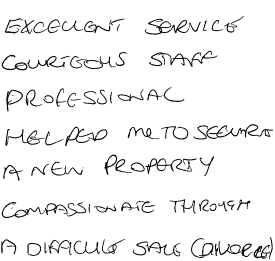 EXCELLENT SERVICE
COURTEOUS STAFF
PROFESSIONAL
HELPED ME TO SECURE
A NEW PROPERTY
COMPASSIONATE THROUGH
A DIFFICULT SALE (DIVORCE)